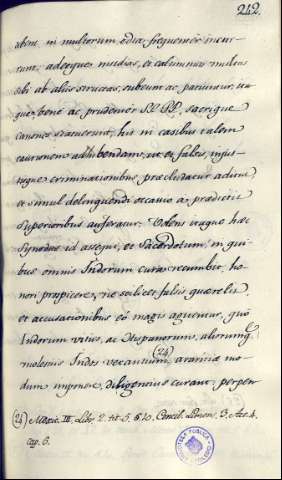 242.
abent in multorum odia frequenter incur-
runt, adeoque invidias, et calumnias multas
sibi ab aliis structas, subeunt ac patiuntur, ita-
que bene ac prudenter SS. PP. sacrique
Canones statuerunt, his in casibus talem
cautionem adhibendam, ut et falsis, injus-
tisque criminationibus praecludatur aditus,
et simul delinquendi occasio à praedictis
Superioribus auferatur. Volens itaque haec
Synodus id assequi, et Sacerdotum, in qui-
bus omnis Indorum cura recumbit, ho-
nori prospicere, ne scilicet falsis quaerelis,
et accusationibus eò magis aguentur, quò
Indorum vitiis, ac Hispanorum, aliorumq.
molestiis Indos vexantium, (24) avaritiae mo-
dum imponere, diligentius curant, perpen-
(24) Mexic. III. Libr. 2. tit. 5. § 10. Concil. Limens. 3. Act. 4.
cap. 6.
BIBLIOTECA PUBLICA